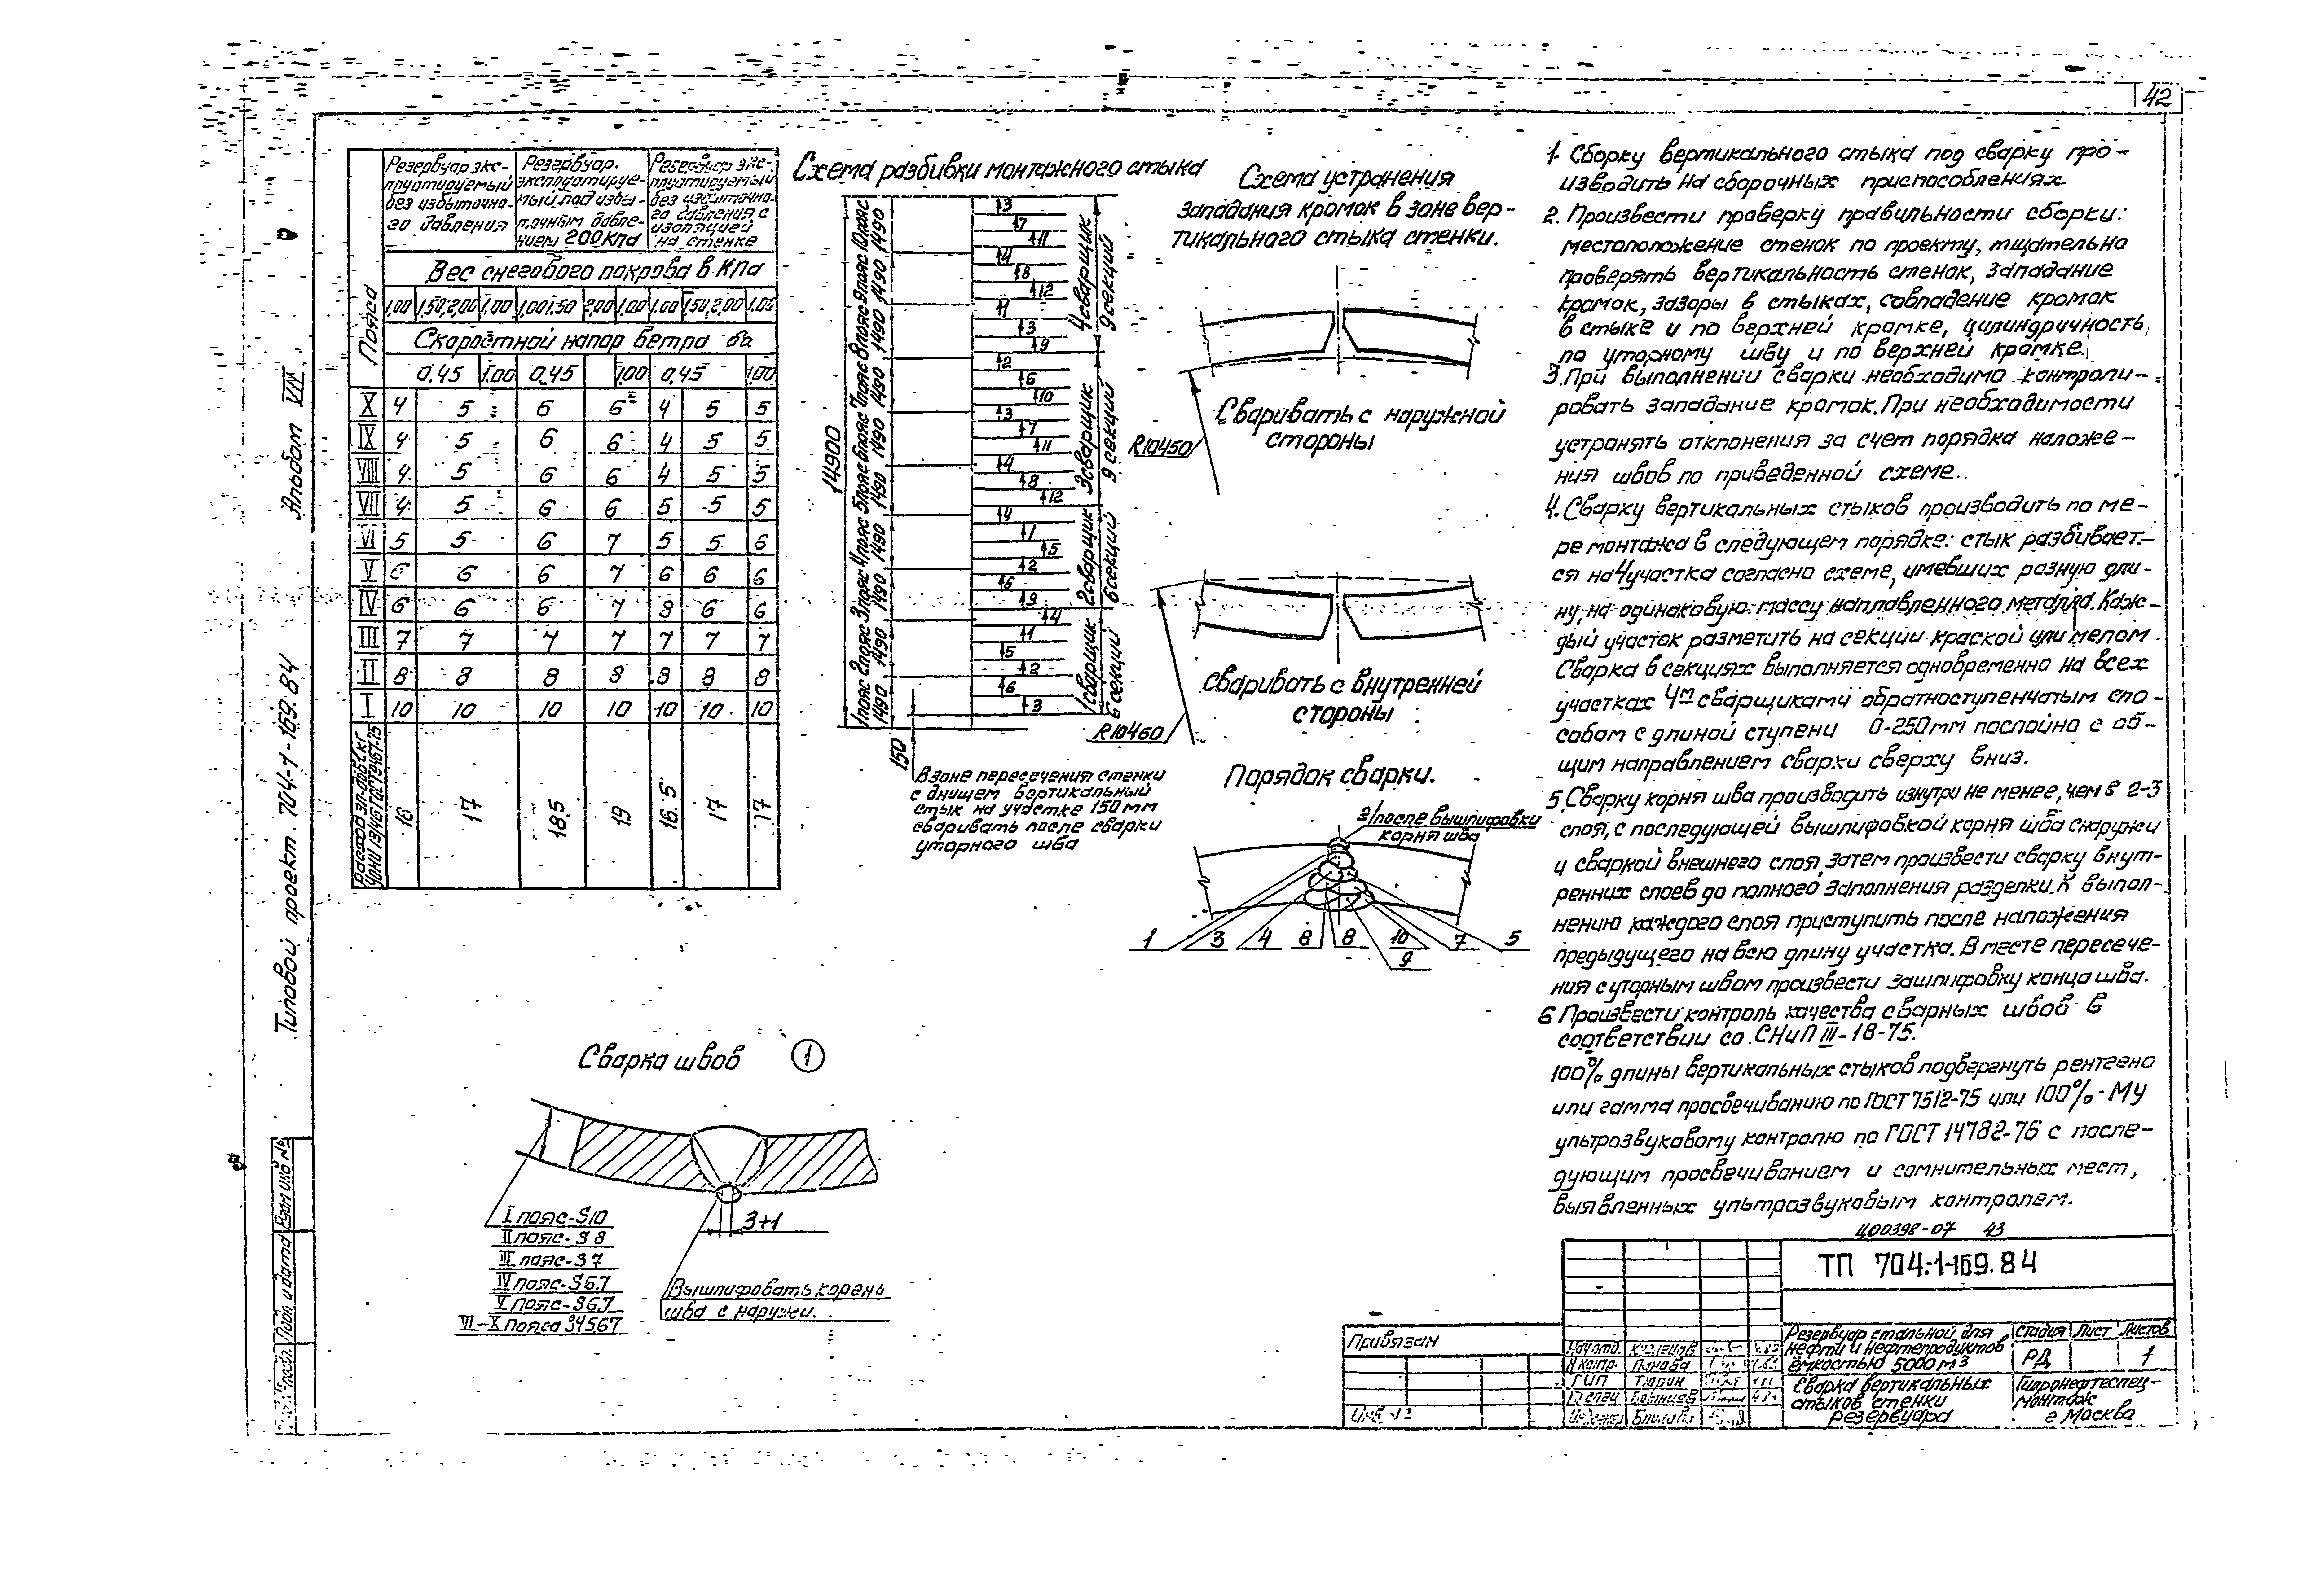 42
Альбом VII
Типовой проект 704-1-169.84
Пояса
Резервуар экс-
плуатируемый
без избыточно-
го давления
Резервуар.
эксплуатируе-
мый под избы-
точным давле-
нием 200КПа
Резервуар экс-
плуатируемый
без избыточно-
го давления с
изоляцией
на стенке
Вес снегового покрова в КПа
1,00 1,50;2,00 1.00 1,00 1,50 2,00 1.00 1.00 1,50;2,00 1.00
Скоростной напор ветра
0,45 1.00 0,45 1,00 0,45 1,00
X 4 5 6 6 4 5 5
IX 4 5 6 6 4 5 5
VIII 4 5 6 6 4 5 5
VII 4 5 6 6 5 5 5
VI 5 5 6 7 5 5 6
V 6 6 6 7 6 6 6
IV 6 6 6 7 6 6
III 7 7 7 7 7 7 7
II 8 8 8 8 8 8 8
I 10 10 10 10 10 10 10
УОНИ 13/45 ГОСТ 9467-75
16 17 18,5 19 16.5 17 17
Схема разбивки монтажного стыка
14900
1пояс 2пояс 3пояс 4пояс 5пояс 6пояс 7пояс 8пояс 9пояс 10пояс
1490 1490 1490 1490 1490 1490 1490 1490 1490 1490
3
7
11
4
8
12
1
3
9
2
6
10
3
7
11
4
8
12
4
1
5
2
6
9
4
1
5
2
6
3
4сварщик
9 секций
3сварщик
9 секций
2сварщик
6секций
1сварщик
6 секций
150
В зоне пересечения стенки
с днищем вертикальный
стык на участке 150мм
сваривать после сварки
уторного шва
Схема устранения
западания кромок в зоне вер-
тикального стыка стенки.
Сваривать с наружной
стороны
R10450
Сваривать с внутренней
стороны
R10460
Порядок сварки.
2/после вышлифовки
корня шва
1 3 4 8 8 10 7 5
9
Сварка швов 1
I пояс-S10
II пояс-S8
III пояс-S7
IV пояс-S6,7
V пояс-S6,7
VI-X пояса S4567
3+1
Вышлифовать корень
шва с наружи.
1. Сборку вертикального стыка под сварку про-
изводить на сборочных приспособлениях
2. Произвести проверку правильности сборки:
местоположение стенок по проекту, тщательно
проверять вертикальность стенок, западание
кромок, зазоры в стыках, совпадение кромок
в стыке и по верхней кромке, цилиндричность,
по уторному шву и по верхней кромке.
3. При выполнении сварки необходимо контроли-
ровать западание кромок. При необходимости
устранять отклонения за счет порядка наложе-
ния швов по приведенной схеме.
4. Сварку вертикальных стыков производить по ме-
ре монтажа в следующем порядке: стык разбивает-
ся на 4 участка согласно схеме, имевших разную дли-
ну, на одинаковую массу наплавленного металла. Каж-
дый участок разметить на секции краской или мелом.
Сварка в секциях выполняется одновременно на всех
участках 4м сварщиками обратноступенчатым спо-
собом с длиной ступени 0-250мм послойно с об-
щим направлением сварки сверху вниз.
5. Сварку корня шва производить изнутри не менее, чем в 2-3
слоя, с последующей вышлифовкой корня шва снаружи
и сваркой внешнего слоя, затем произвести сварку внут-
ренних слоев до полного заполнения разделки. К выпол-
нению каждого слоя приступить после наложения
предыдущего на всю длину участка. В месте пересече-
ния с уторным швом произвести зашлифовку конца шва.
6 Произвести контроль качества сварных швов в
соответствии со СНиП III-18-75.
100% длины вертикальных стыков подвергнуть рентгено
или гамма просвечиванию по ГОСТ 7512-75 или 100%-му
ультразвуковому контролю по ГОСТ 14782-76 с после-
дующим просвечиванием и сомнительных мест,
выявленных ультразвуковым контролем.
Ц00398-07 43
ТП 704-1-169.84
Резервуар стальной для
нефти и нефтепродуктов
ёмкостью 5000м3
Стадия Лист Листов
РД 1
Сварка вертикальных
стыков стенки
резервуара
Гипронефтеспец-
монтаж
г Москва
Нач.отд.
Н контр. Панова
ГИП Тюрин
Привязан
Инв. №
Взам инв №
Подп. и дата